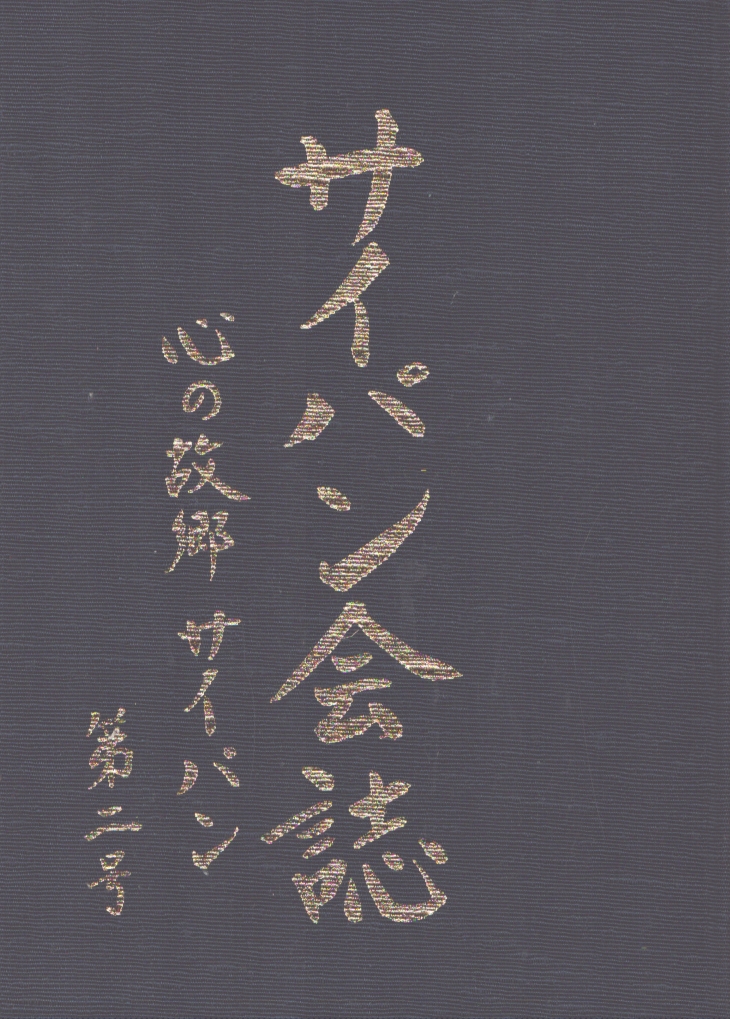 サイパン会誌
心の故郷 サイパン
第二号